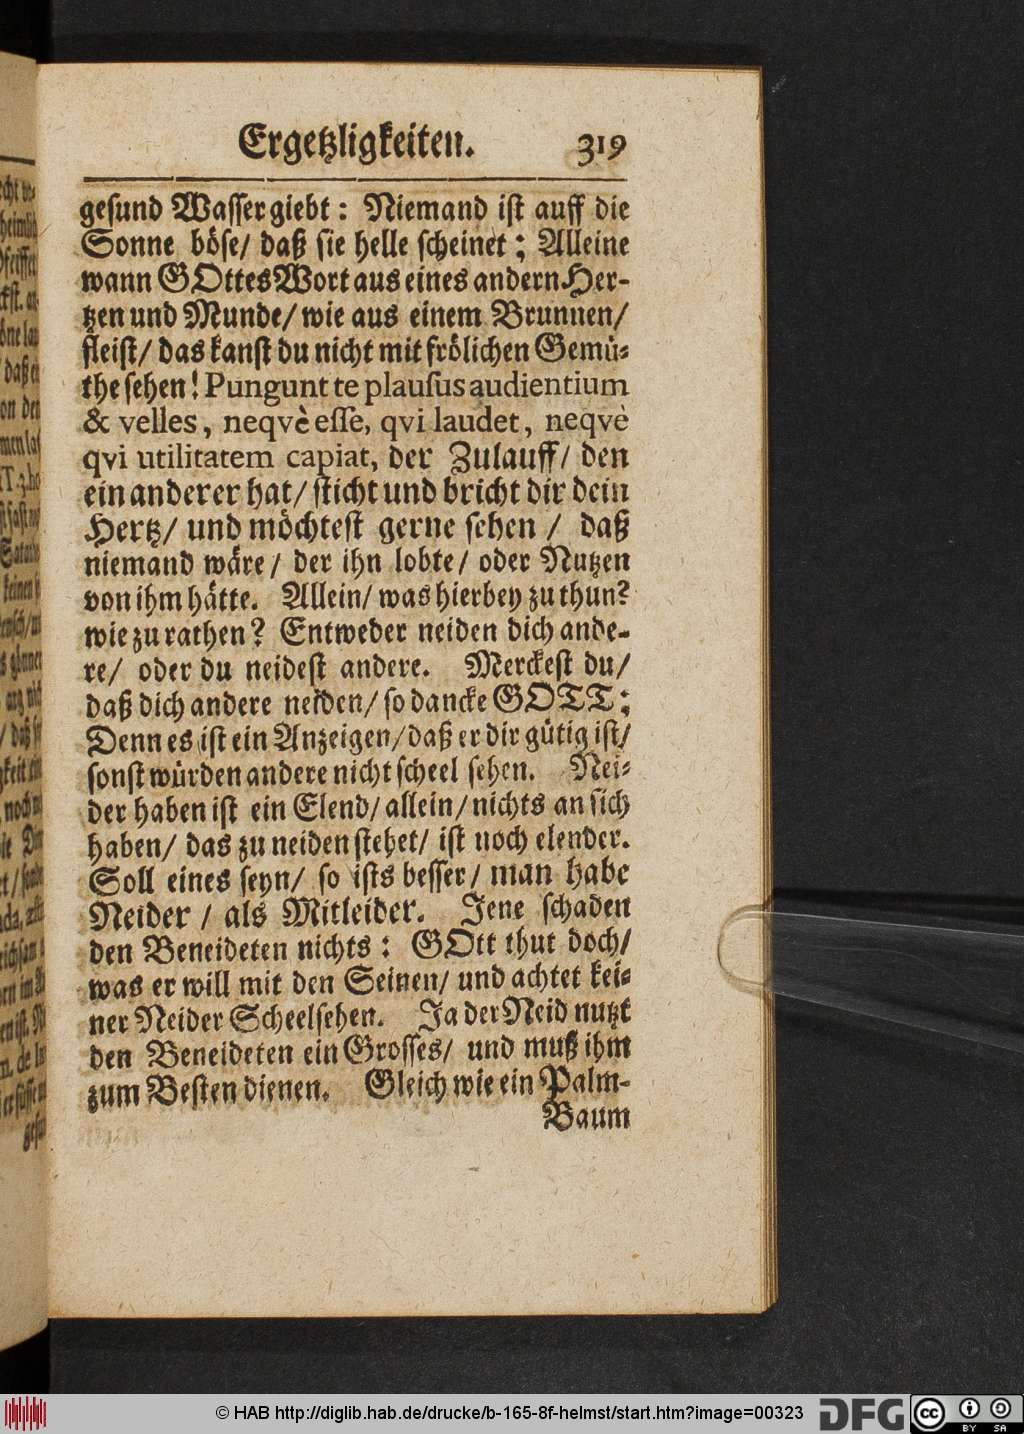 Ergetzligkeiten. 319
gesund Wasser giebt: Niemand ist auff die
Sonne böse/ daß sie helle scheinet; Alleine
wann GOttes Wort aus eines andern Her-
tzen und Munde/ wie aus einem Brunnen/
fleist/ das kanst du nicht mit frölichen Gemü-
the sehen! Pungunt te plausus audientium
& velles, neqvè esse, qvi laudet, neqvè
qvi utilitatem capiat, der Zulauff/ den
ein anderer hat/ sticht und bricht dir dein
Hertz/ und möchtest gerne sehen / daß
niemand wäre/ der ihn lobte/ oder Nutzen
von ihm hätte. Allein/ was hierbey zu thun?
wie zu rathen? Entweder neiden dich ande-
re/ oder du neidest andere. Merckest du/
daß dich andere neiden/ so dancke GOTT;
Denn es ist ein Anzeigen/ daß er dir gütig ist/
sonst würden andere nicht scheel sehen. Nei-
der haben ist ein Elend/ allein/ nichts an sich
haben/ das zu neiden stehet/ ist noch elender.
Soll eines seyn/ so ists besser/ man habe
Neider / als Mitleider. Jene schaden
den Beneideten nichts: GOtt thut doch/
was er will mit den Seinen/ und achtet kei-
ner Neider Scheelsehen. Ja der Neid nutzt
den Beneideten ein Grosses/ und muß ihm
zum Besten dienen. Gleich wie ein Palm-
Baum
© HAB http://diglib.hab.de/drucke/b-165-8f-helmst/start.htm?image=00323
DFG
cc BY SA